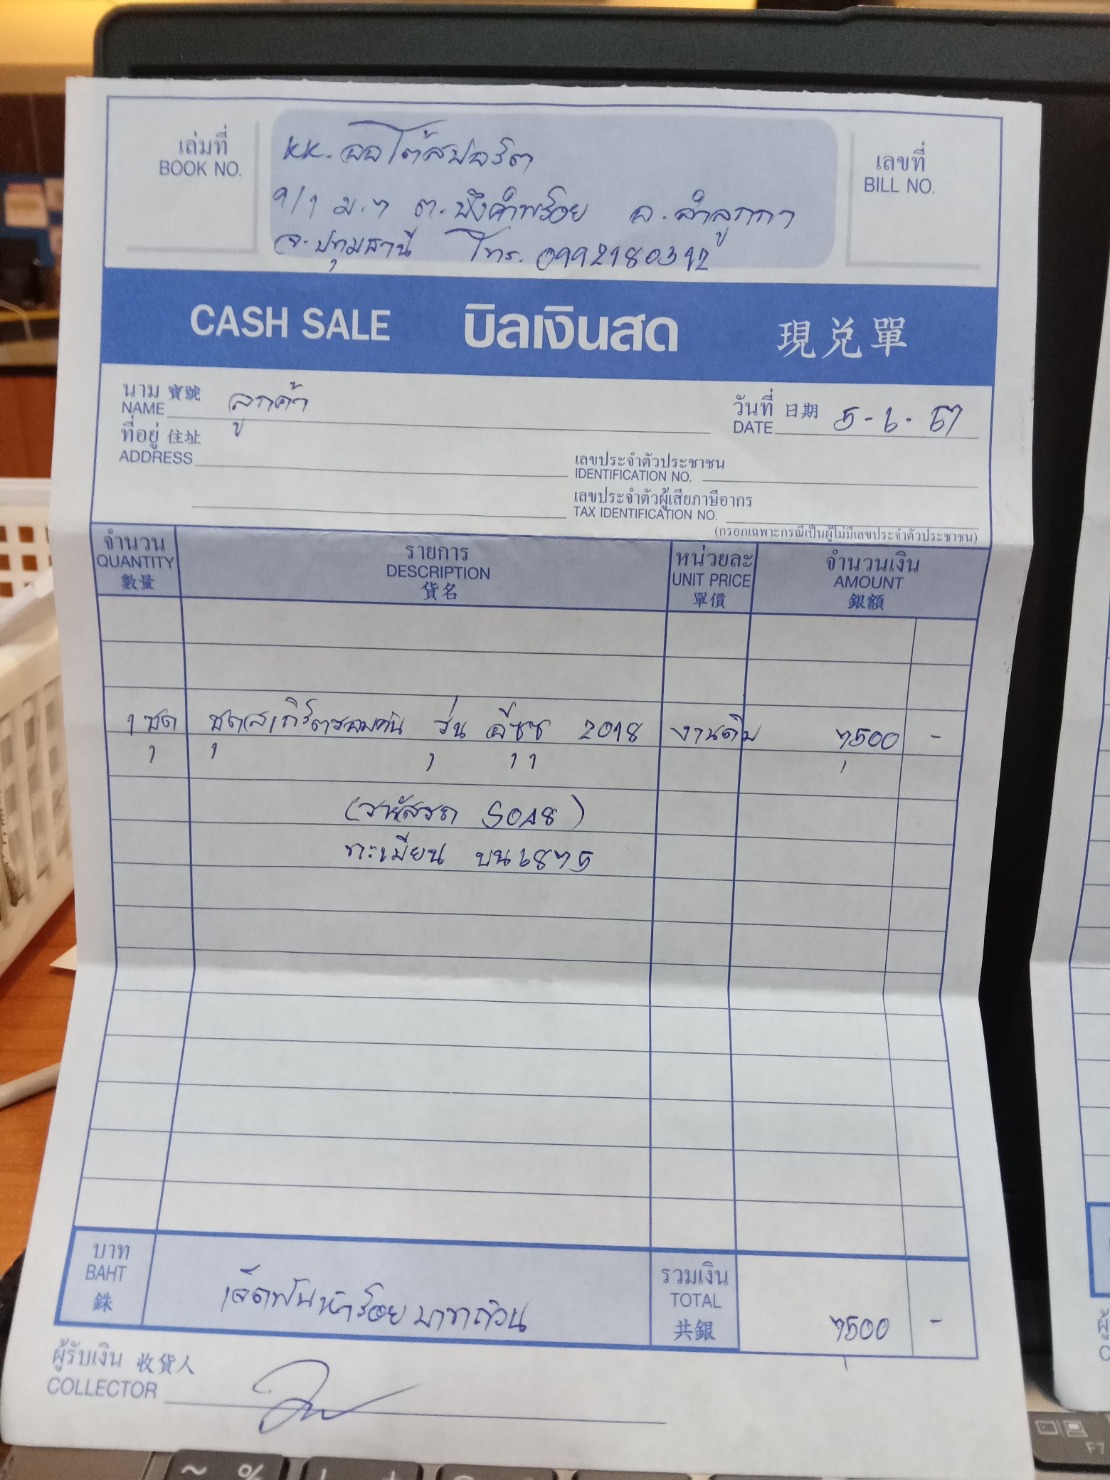 เล่มที่
BOOK NO.
KK.ออโต้สปอร์ต
9/1 ม.7 ต.บึงคำพร้อย อ.ลำลูกกา
จ.ปทุมธานี โทร. 0992180392
เลขที่
BILL NO.
CASH SALE บิลเงินสด 現兌單
นาม 寶號
NAME ลูกค้า
วันที่ 日期
DATE 5-6-67
ที่อยู่ 住址
ADDRESS
เลขประจำตัวประชาชน
IDENTIFICATION NO.
เลขประจำตัวผู้เสียภาษีอากร
TAX IDENTIFICATION NO.
(กรอกเฉพาะกรณีเป็นผู้ไม่มีเลขประจำตัวประชาชน)
จำนวน รายการ หน่วยละ จำนวนเงิน
QUANTITY DESCRIPTION UNIT PRICE AMOUNT
數量 貨名 單價 銀額
1 ชุด ชุดสเกิร์ตรอบคัน รุ่น อีซูซุ 2018 งานดิบ 7500 -
(รหัสรถ SOA8)
ทะเบียน บน6875
บาท
BAHT
銖
เจ็ดพันห้าร้อยบาทถ้วน
รวมเงิน
TOTAL
共銀
7500 -
ผู้รับเงิน 收貨人
COLLECTOR
F7